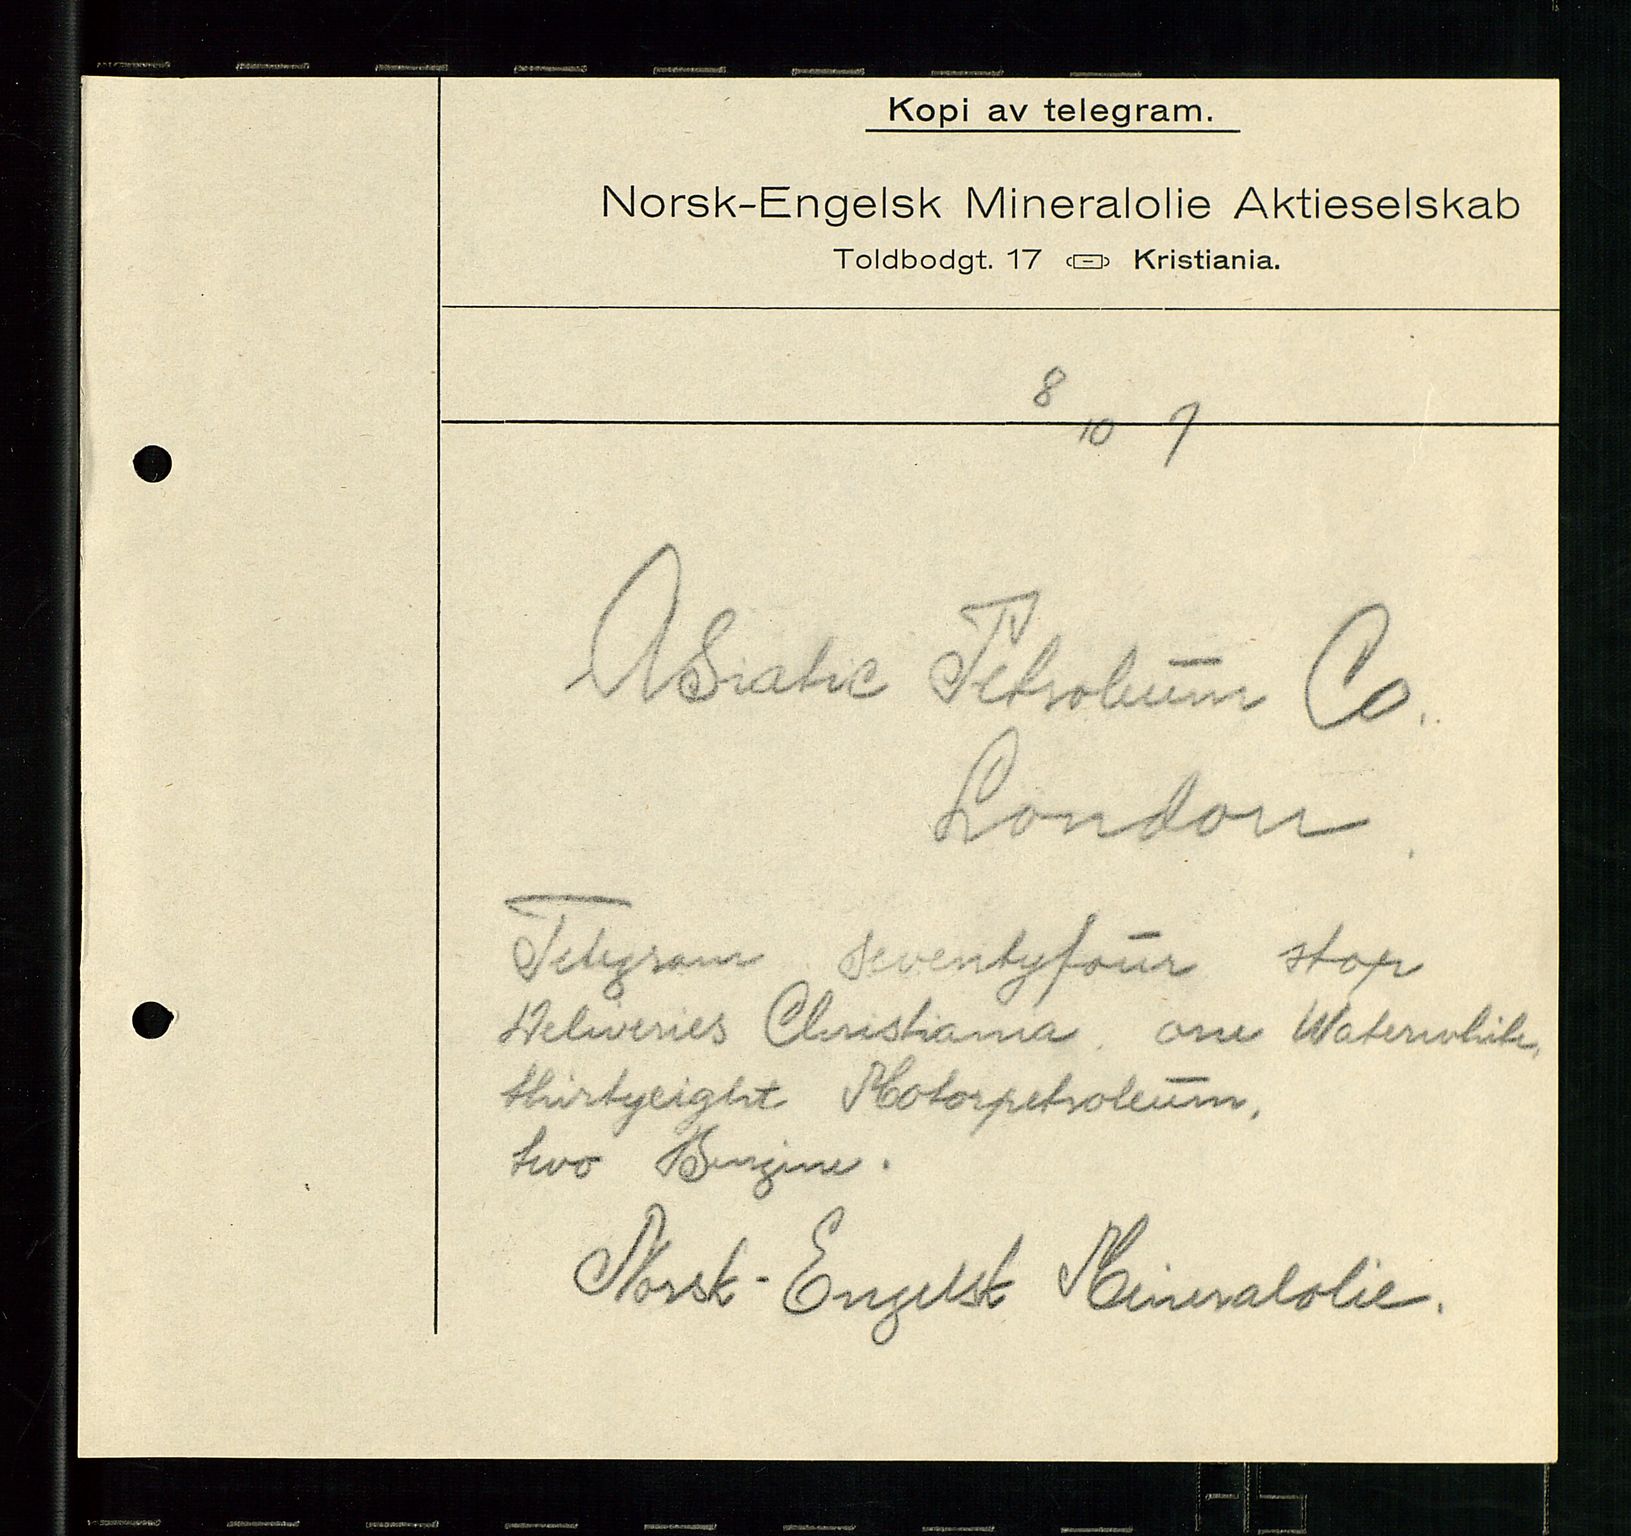 Kopi av telegram.
Norsk-Engelsk Mineralolie Aktieselskab
Toldbodgt. 17 Kristiania.
8/10 7
Asiatic Petroleum Co.
London.
Telegram seventyfour stop
Deliveries Christiania. one Waterwhite,
thirtyeight Motorpetroleum,
two Benzine.
Norsk-Engelsk Mineralolie.